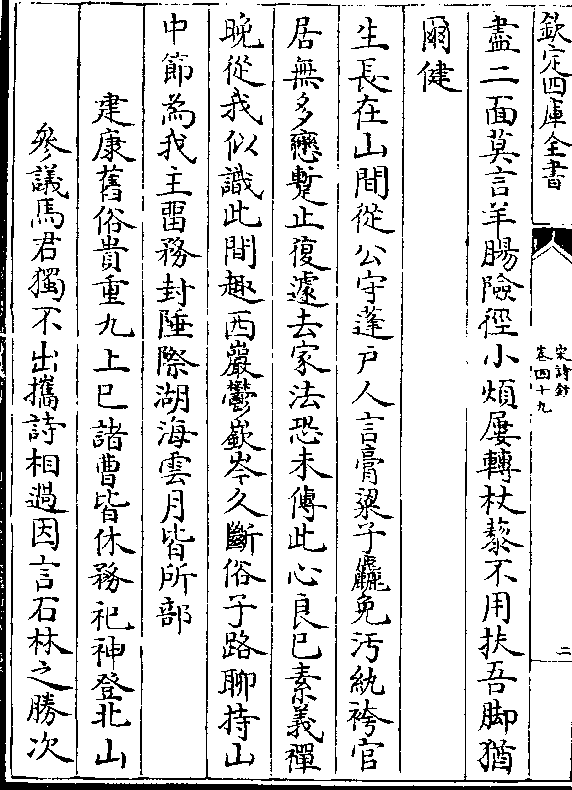 欽定四庫全書
宋詩鈔
卷四十九
二
盡二面莫言羊腸險徑小煩屢轉杖藜不用扶吾脚猶
爾健
生長在山間從公守蓬户人言膏粱子麤免汚紈袴官
居無多戀暫止復遽去家法恐未傳此心良已素義禪
晚從我似識此間趣西巖鬱嶔岑久斷俗子路聊持山
中節為我主畱務封陲際湖海雲月皆所部
建康舊俗貴重九上巳諸曹皆休務祀神登北山
參議馬君獨不出攜詩相過因言石林之勝次